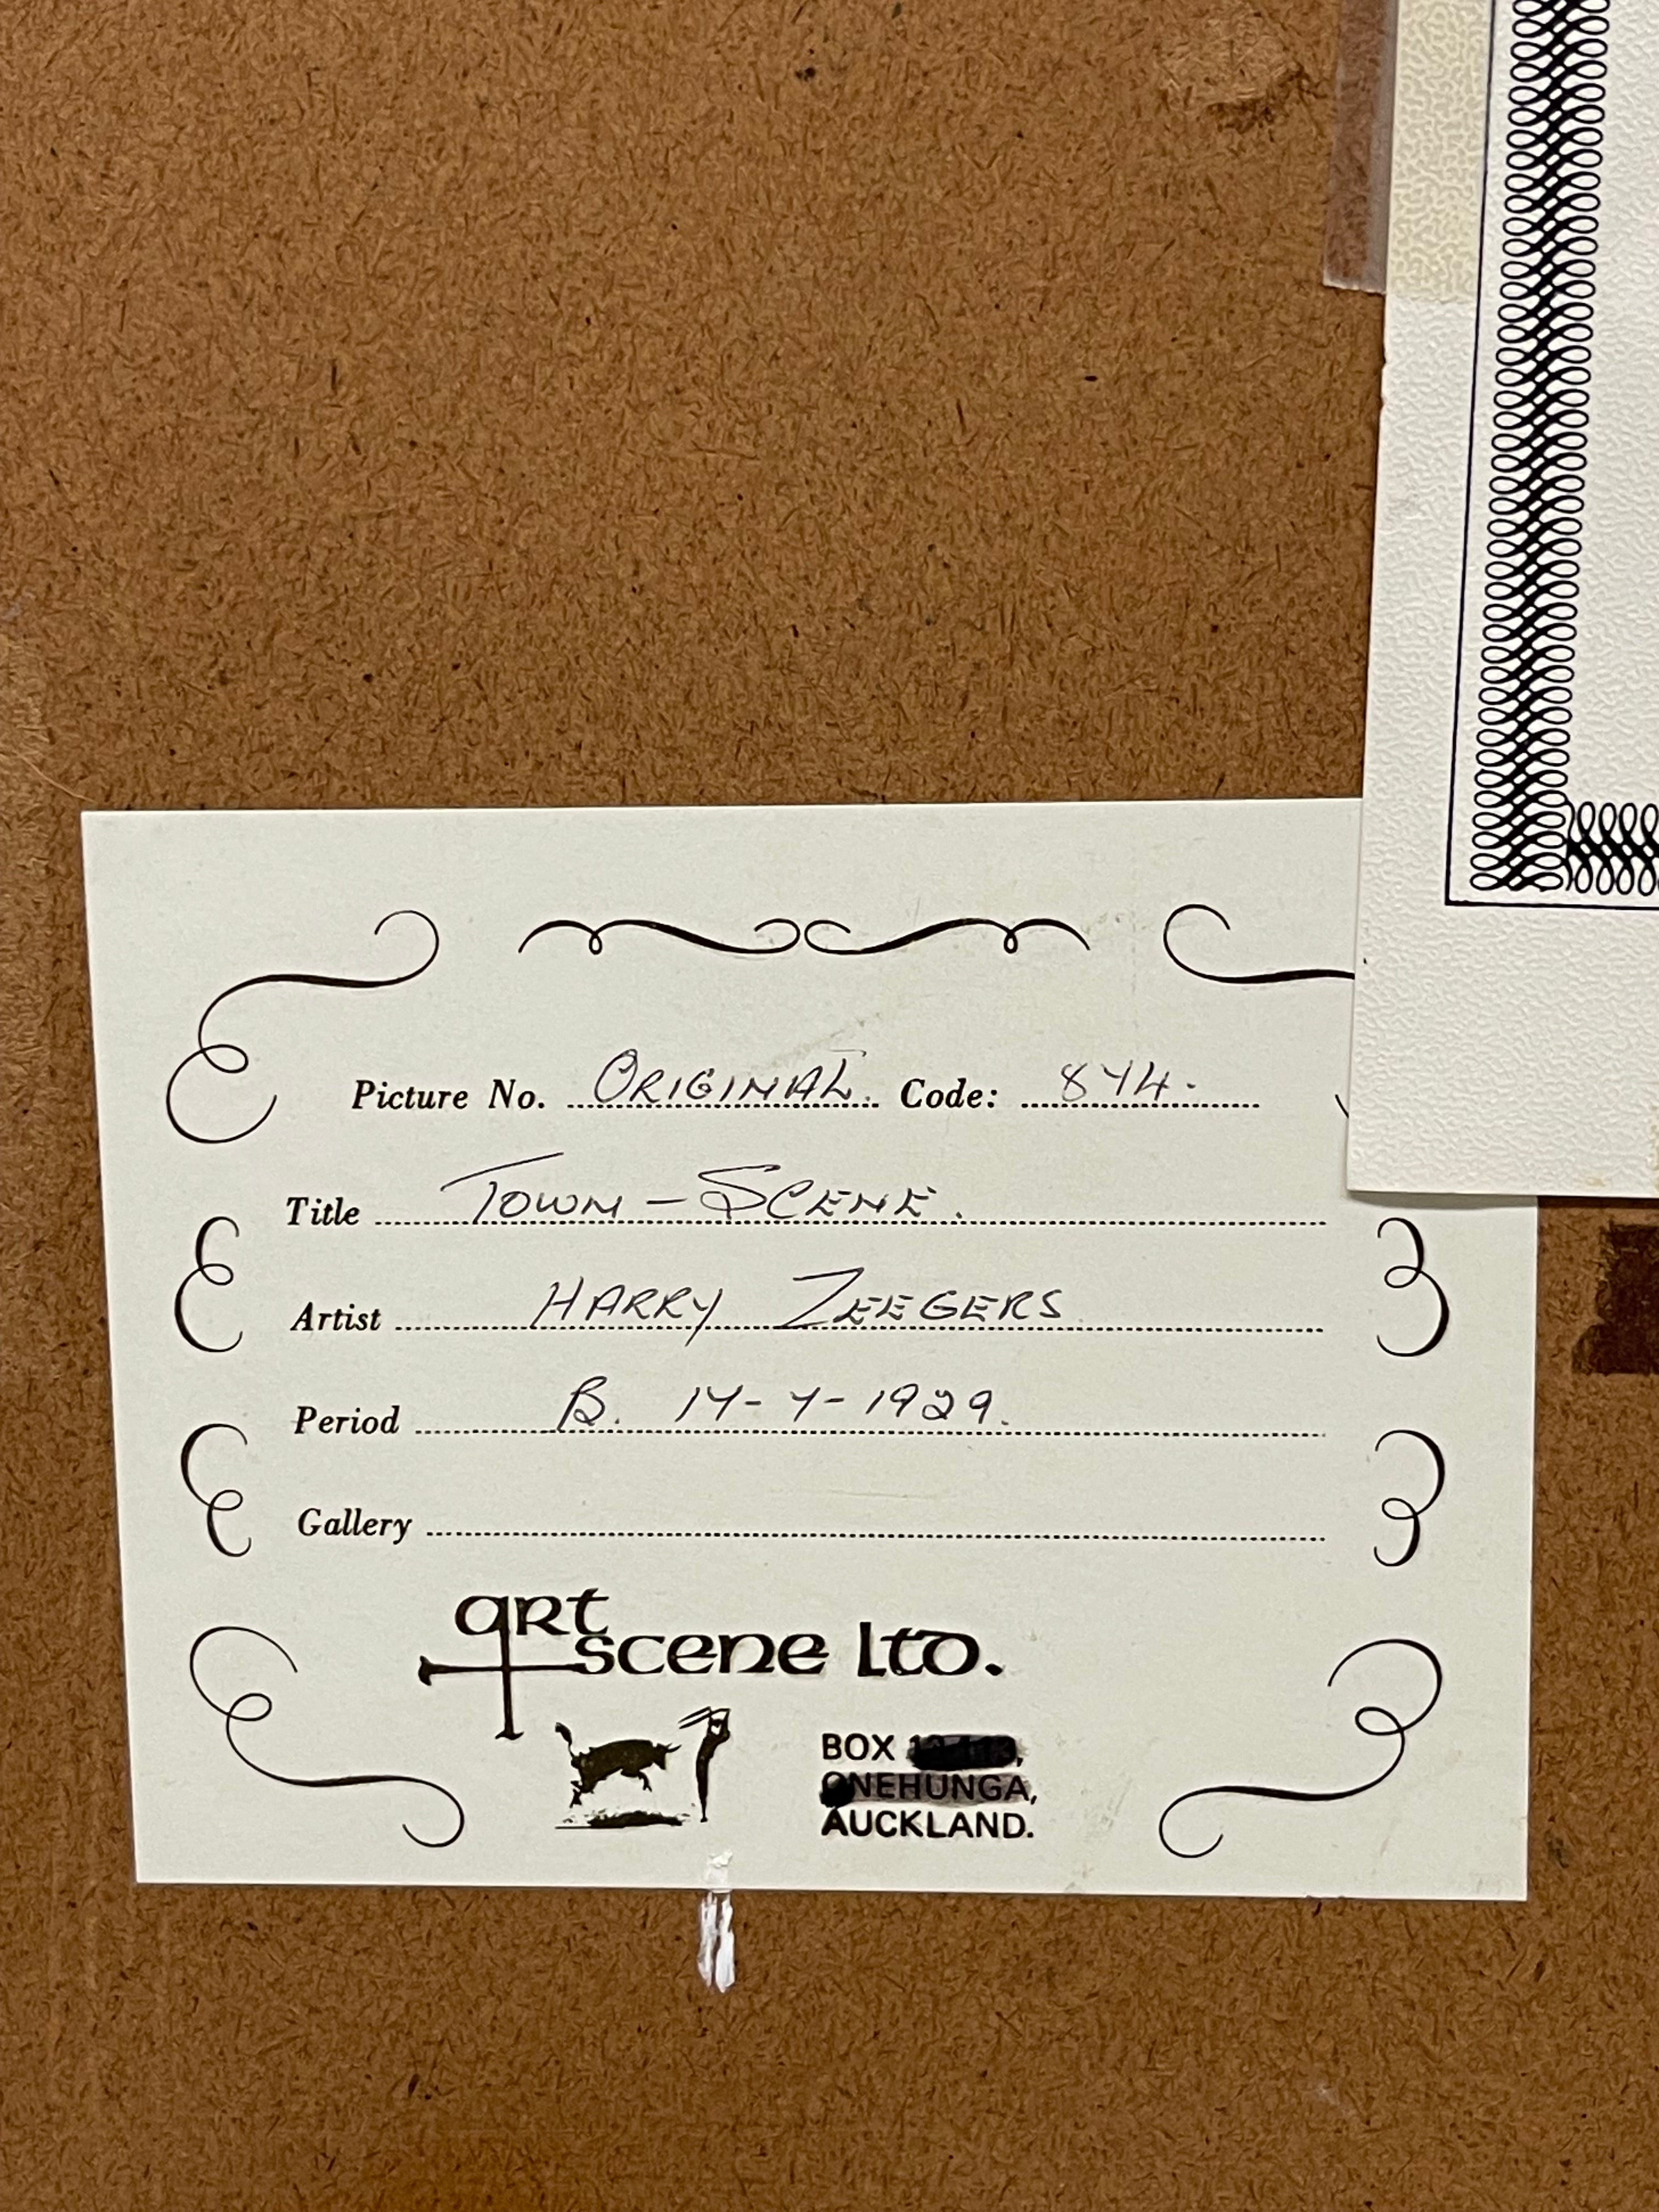 Picture No. ORIGINAL. Code: 874.
Title TOWN – SCENE.
Artist HARRY ZEEGERS
Period B. 17-7-1929.
Gallery
art
scene LTD.
BOX
ONEHUNGA,
AUCKLAND.